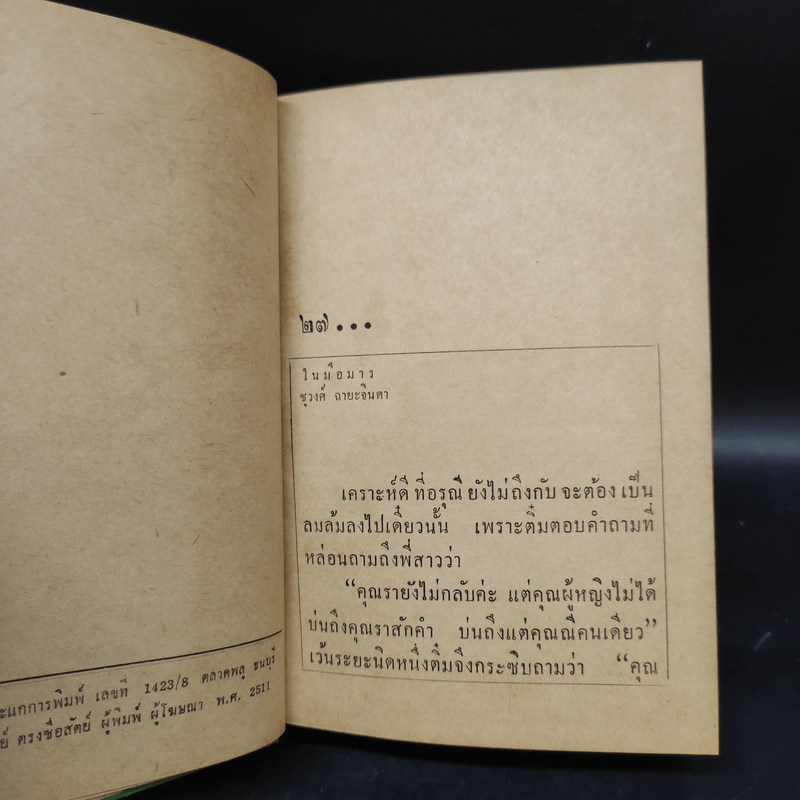 การพิมพ์ เลขที่ 1423/8 ตลาดพลู ธนบุรี
ตรงชื่อสัตย์ ผู้พิมพ์ ผู้โฆษณา พ.ศ. 2511
๒๗...
ในมือมาร
ชูวงศ์ ฉายะจินดา
เคราะห์ดี ที่อรุณี ยังไม่ ถึงกับ จะต้อง เป็น
ลมล้มลงไปเดี๋ยวนั้น เพราะติ๋มตอบคำถามที่
หล่อนถามถึงพี่สาวว่า
“คุณรายังไม่กลับค่ะ แต่คุณผู้หญิงไม่ได้
บ่นถึงคุณราสักคำ บ่นถึงแต่คุณณีคนเดียว”
เว้นระยะนิดหนึ่งติ๋มจึงกระซิบถามว่า “คุณ